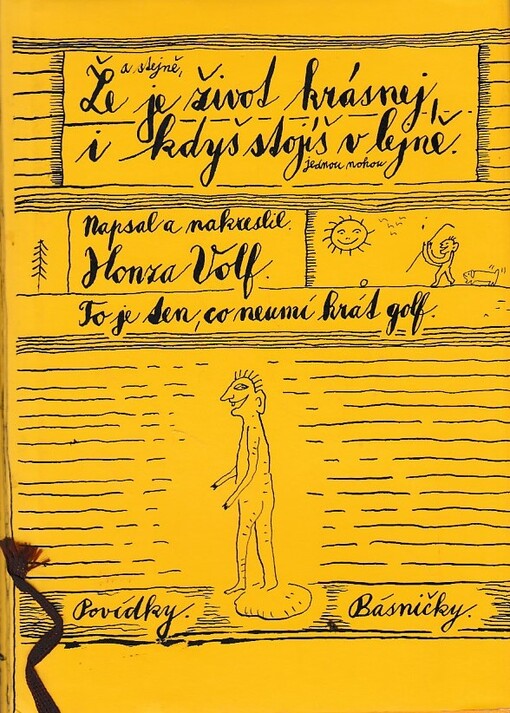 a stejně,
Že je život krásnej,
i kdyš stojíš v lejně.
jednou nohou
Napsal a nakreslil.
Honza Volf.
To je ten, co neumí hrát golf.
Povídky. Básničky.